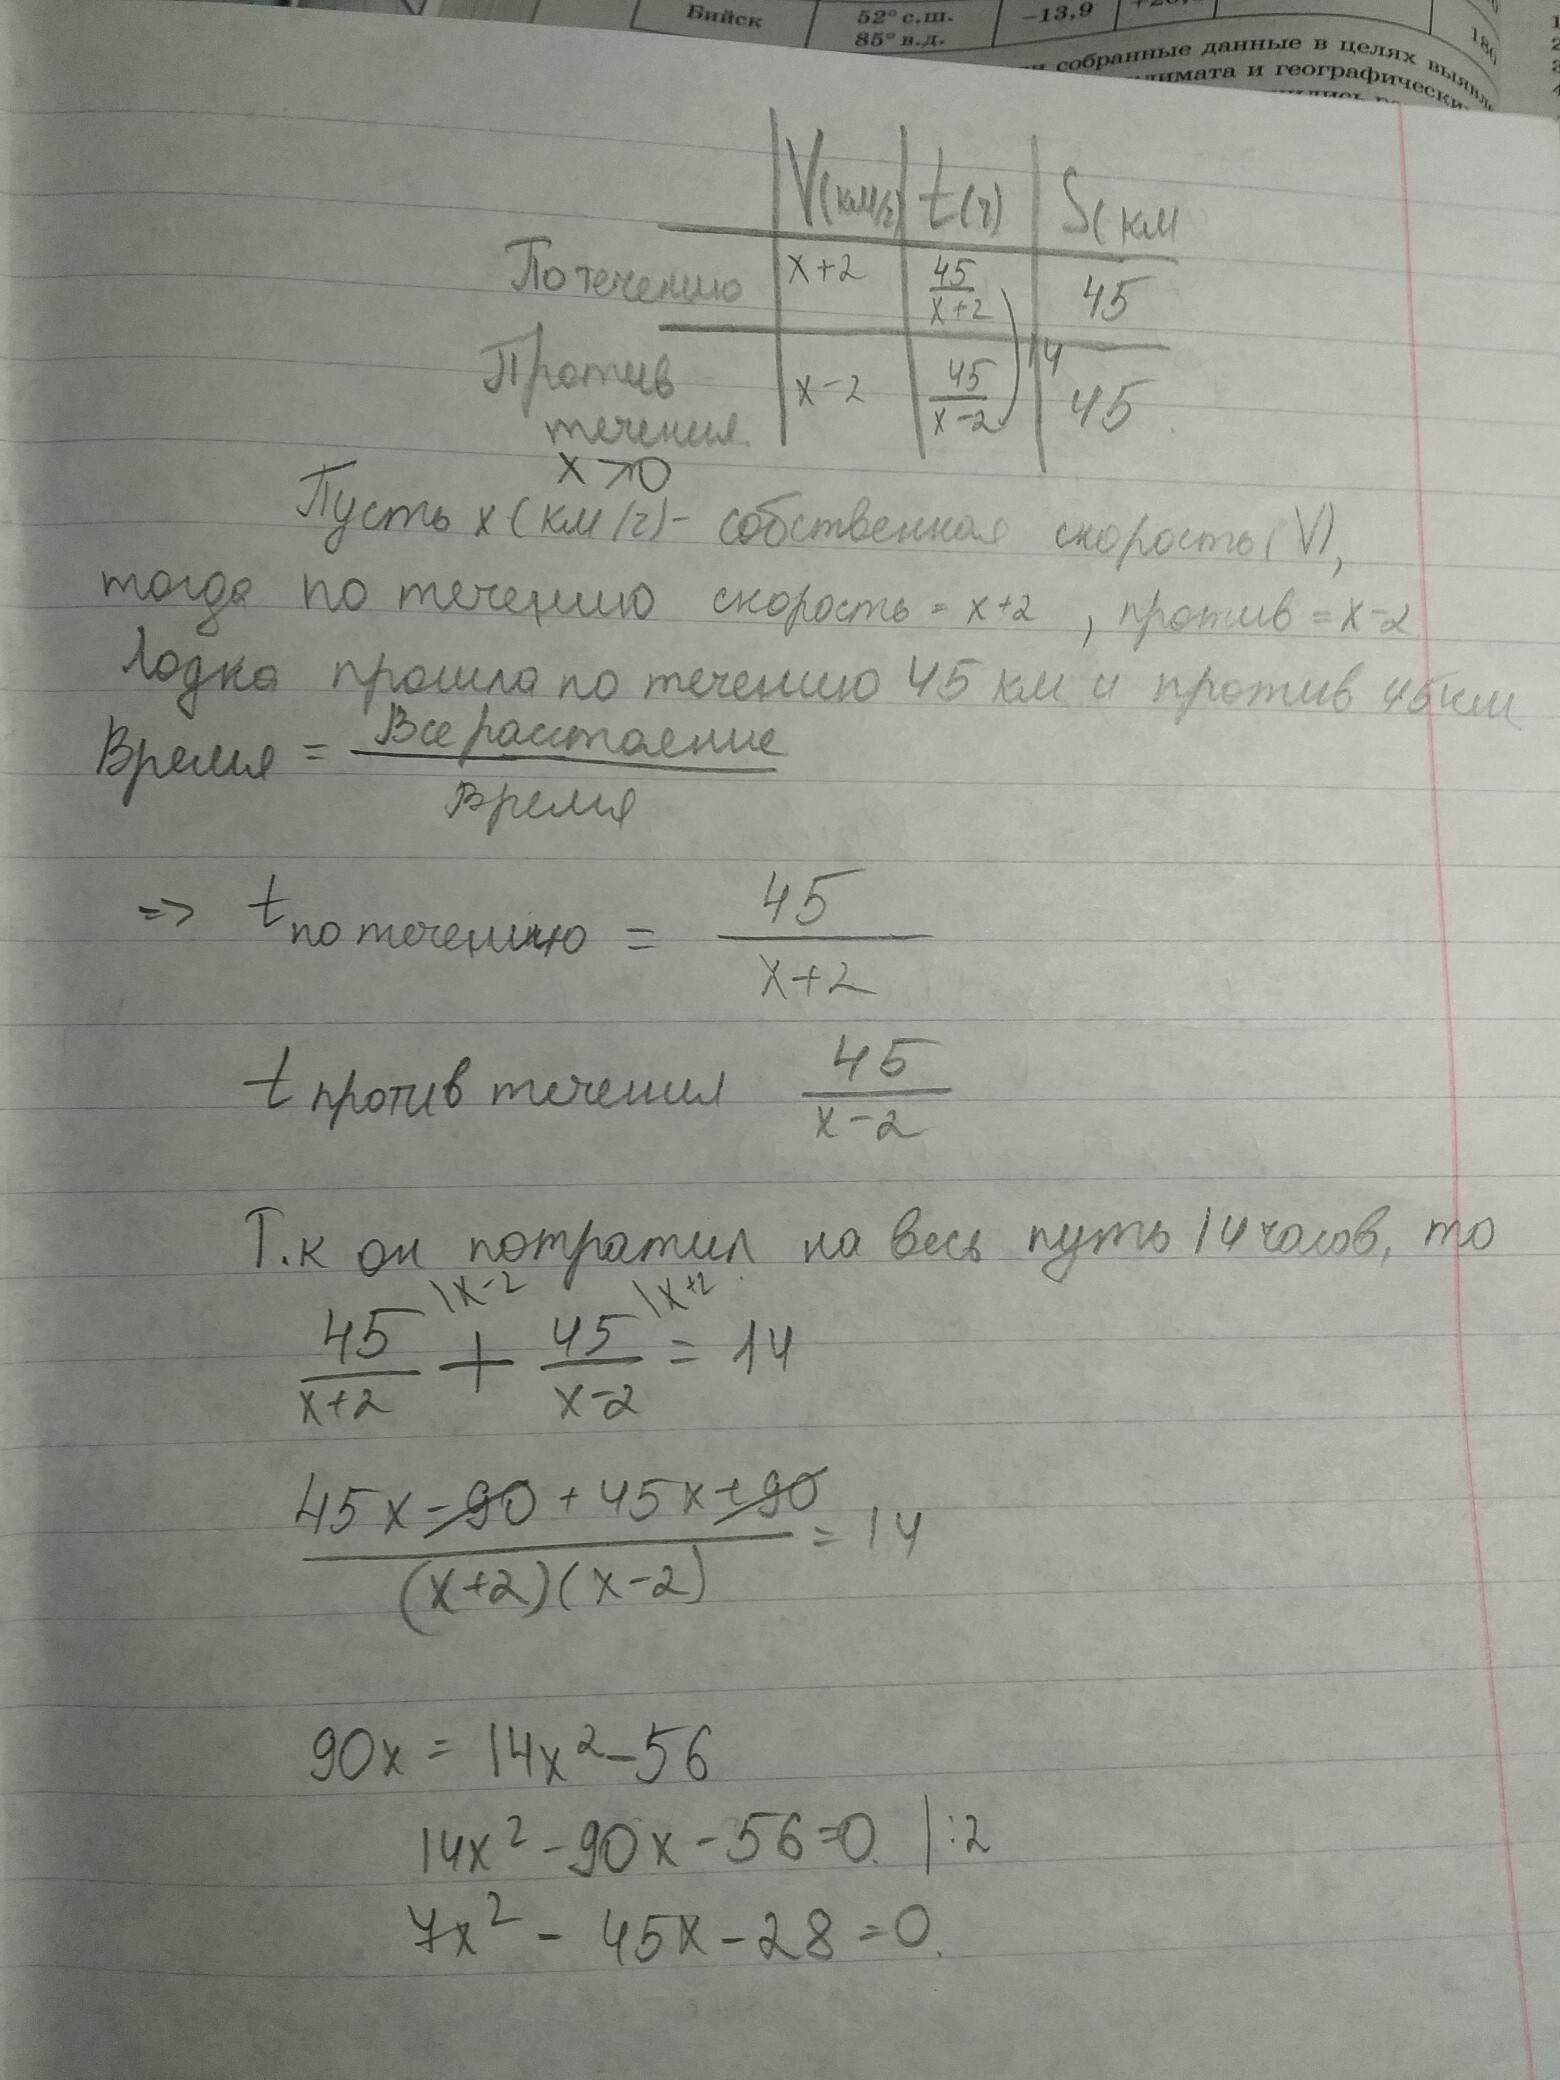 Бийск 52° с.ш. 85° в.д. -13,9
собранные данные в целях
климата и географически
180
V(км/ч) t(ч) S(км
По течению x+2 45/(x+2) 45
14
Против x-2 45/(x-2) 45
течения
x>0
Пусть x(км/ч)- собственная скорость(V),
тогда по течению скорость = x+2, против = x-2
Лодка прошла по течению 45 км и против 45км
Время = Все расстояние/Время
=> t по течению = 45/(x+2)
t против течения 45/(x-2)
Т.к он потратил на весь путь 14 часов, то
45/(x+2) \x-2 + 45/(x-2) \x+2 = 14
(45x-90+45x+90)/((x+2)(x-2)) = 14
90x = 14x²-56
14x²-90x-56=0. |:2
7x² - 45x-28=0.